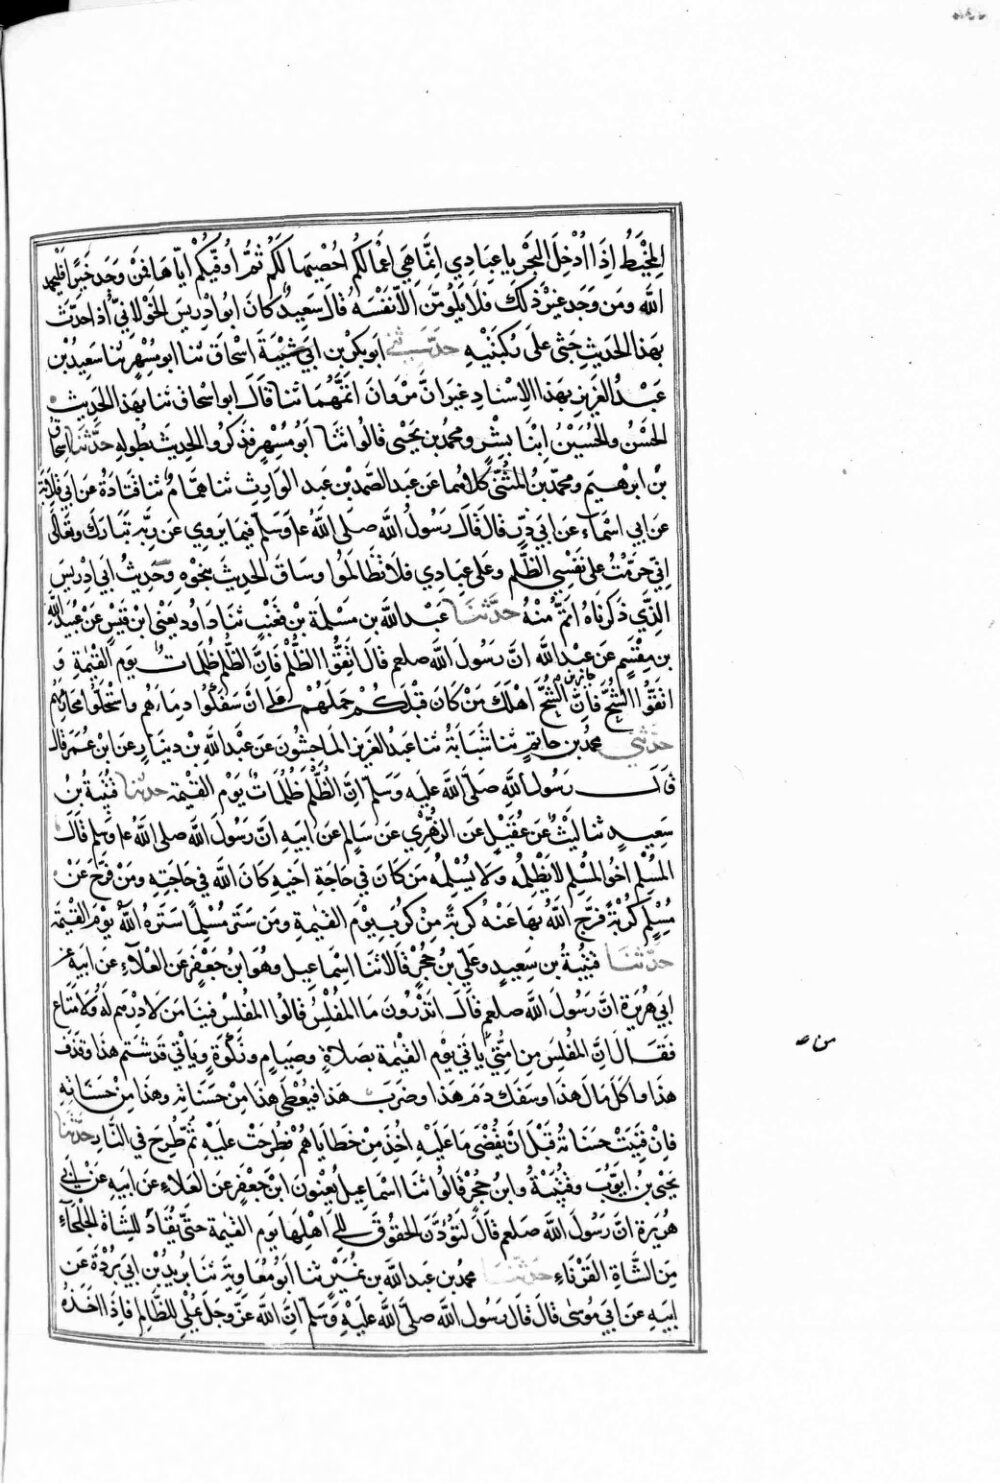 المِخْيَطُ اِذَا اُدْخِلَ البَحْرَ يا عِبَادِي اِنَّمَا هِيَ اَعْمَالُكُم اُحْصِيهَا لَكُمْ ثُمَّ اُوَفِّيكُمْ اِيَّاهَا فَمَنْ وَجَدَ خَيْرًا فَلْيَحْمَدِ
الله وَمَن وَجَدَ غَيْرَ ذلِكَ فَلَا يَلُومَنَّ اِلَّا نَفْسَهُ قالَ سَعِيدٌ كانَ ابُو ادْرِيسَ الخَوْلَانِيُّ اذا حَدَّثَ
بهذا الحَدِيثِ جَثَى عَلَى رُكْبَتَيْهِ حدّثنيه ابو بَكْرِ بن ابي شَيْبَةَ اسْحَاق ثنا ابو مُسْهِرٍ ثنا سَعِيدُ بْن
عَبْدُ العَزِيزِ بهَذا الاِسْنادِ غيرَ انَّ مَرْوَانَ اتَمُّهُمَا ثنا قَالَ ابو اسْحاق ثنا بهَذا الحَدِيثِ
الحَسَنُ والحُسَيْنُ اِبْنَا بِشْرٍ ومحمد بن يَحْيَى قالوا ثنا ابو مُسْهِرٍ فذكروا الحديثَ بطُولِهِ حدّثنا اسحاق
بْن ابرٰهيم ومحمد بن المُثَنَّى كلاهما عن عبد الصَّمَد بْن عبد الوَارِثِ ثنا هَمَّامٌ ثنا قتَادَةُ عن ابي قِلَابَةَ
عن ابي اسْمَاءَ عن ابي ذَرٍّ قال قَالَ رَسُولُ اللّٰه صلى اللّٰهُ علم وَسلم فيما يَرْوِي عَن رَبِّهِ تَبَارَكَ وتَعَالَى
اِنِّي حَرَّمْتُ عَلَى نَفْسِي الظُّلْم وعَلَى عِبَادِي فَلَا تَظَالَمُوا وسَاقَ الحَدِيثَ بنَحْوِهِ وَحَدِيثُ ابي ادْرِيسَ
الَّذِي ذَكَرْنَاهُ اتَمُّ مِنْهُ حدّثنا عَبْد اللّٰه بن مَسْلَمَةَ بْن قَعْنَبٍ ثنا دَاوُد يَعْنِي ابْنَ قَيْسٍ عَنْ عُبَيْدِ اللّٰهِ
بن مِقْسَمٍ عن جابر بن عبد اللّٰه انَّ رَسُولَ اللّٰه صلعم قالَ اتَّقُوا الظُّلْمَ فَاِنَّ الظُّلْمَ ظُلُمَاتٌ يَوم القِيٰمَةِ وَ
اتَّقُوا الشُّحَّ فَاِنَّ الشُّحَّ اَهْلَكَ مَنْ كَانَ قَبْلَكُمْ حَمَلَهُمْ على انْ سَفَكُوا دِمَاءَهُم واسْتَحَلُّوا مَحَارِمَهُم
حدّثني محمد بن حاتِمٍ ثنا شَبَابَةُ ثنا عبدُ العَزِيزِ الماجِشُونَ عَن عَبْدِ اللّٰهِ بْن دِينارٍ عن ابن عُمَرَ قال
قالــ رَسُولُ اللّٰهِ صَلَّى اللّٰهُ عَلَيهِ وَسَلَّم انَّ الظُّلْمَ ظُلُمَاتٌ يَوْم القِيٰمة حدثنا قُتَيْبَةُ بْن
سَعِيدٍ ثنا لَيْثٌ عَن عُقَيْلٍ عَن الزُّهْرِيِّ عَن سَالِمٍ عَن ابيهِ انَّ رَسُولَ اللّٰه صلى اللّٰهُ علم وَسلم قَالَ
المُسْلِمُ اخُو المُسْلِمِ لَا يَظْلِمُهُ وَلَا يُسْلِمُهُ مَن كَانَ فِي حَاجَةِ اخِيهِ كَانَ اللّٰه فِي حَاجَتِهِ ومَنْ فَرَّجَ عَنْ
مُسْلِمٍ كُرْبَةً فَرَّجَ اللّٰهُ بهَا عَنْهُ كُرْبَةً مِنْ كُرَبِ يَوْمِ القِيٰمَةِ ومَن سَتَرَ مُسْلِمًا سَتَرَهُ اللّٰهُ يَوْمَ القِيٰمَة
حدّثنا قُتَيْبَةُ بن سَعِيدٍ وعَلِيُّ بن حُجْرٍ قالا ثنا اسْمَاعِيل وهُوَ ابن جَعْفَرٍ عَن العَلَاءِ عَن ابيهِ عن
ابي هُرَيْرَةَ انَّ رَسُولَ اللّٰه صلعم قَالَ اتَدْرُونَ ما المُفْلِسُ قالُوا المُفْلِسُ فِينَا مَن لَا دِرْهَم لَهُ ولا مَتَاع
فقَالَ انَّ المُفْلِسَ مِن امَّتِي يَأتي يَوْم القِيٰمَة بصَلَاةٍ وصِيَامٍ وزَكٰوةٍ ويَاتِي قَد شَتَمَ هَذا وقَذَفَ
هَذا واكَلَ مَالَ هَذا وسَفَكَ دَمَ هَذا وضَرَبَ هَذا فيُعْطَى هَذا مِن حَسَنَاتِهِ وهَذا مِنْ حَسَنَاتِهِ
فَاِنْ فَنِيَتْ حَسَنَاتُهُ قَبْلَ انْ يُقْضَى مَا عَلَيْهِ اُخِذَ مِنْ خَطَايَاهُمْ فطُرِحَتْ عَلَيْهِ ثُمَّ طُرِحَ فِي النَّارِ حدّثنا
يَحْيَى بن ايُّوبَ وقُتَيْبَةُ وابن حُجْرٍ قَالُوا ثنا اسْمَاعِيل يَعْنُونَ ابنَ جَعْفَرٍ عَنِ العَلَاءِ عَن ابيهِ عَنْ ابي
هُرَيْرَة انَّ رَسُولَ اللّٰه صلعم قَالَ لَتُؤَدَّنَ الحُقُوقَ الى اهْلِهَا يَوم القِيٰمَة حَتَّى يُقَادَ لِلشَّاةِ الجَلْحَاءِ
مِنَ الشَّاةِ القَرْنَاءِ حدّثنا محمد بن عبد اللّٰه بن نُمَيْرٍ ثنا ابو مُعَاوِيَةَ ثنا بُرَيْدُ بْن ابي بُرْدَةَ عَن
ابيهِ عَن ابي مُوسَى قالَ قَالَ رَسُولُ اللّٰه صلَّى اللّٰهُ عَلَيْهِ وَسَلَّم اِنَّ اللّٰهَ عَزَّ وَجَلَّ يُمْلِي لِلظَّالِمِ فَاِذَا اخَذَهُ